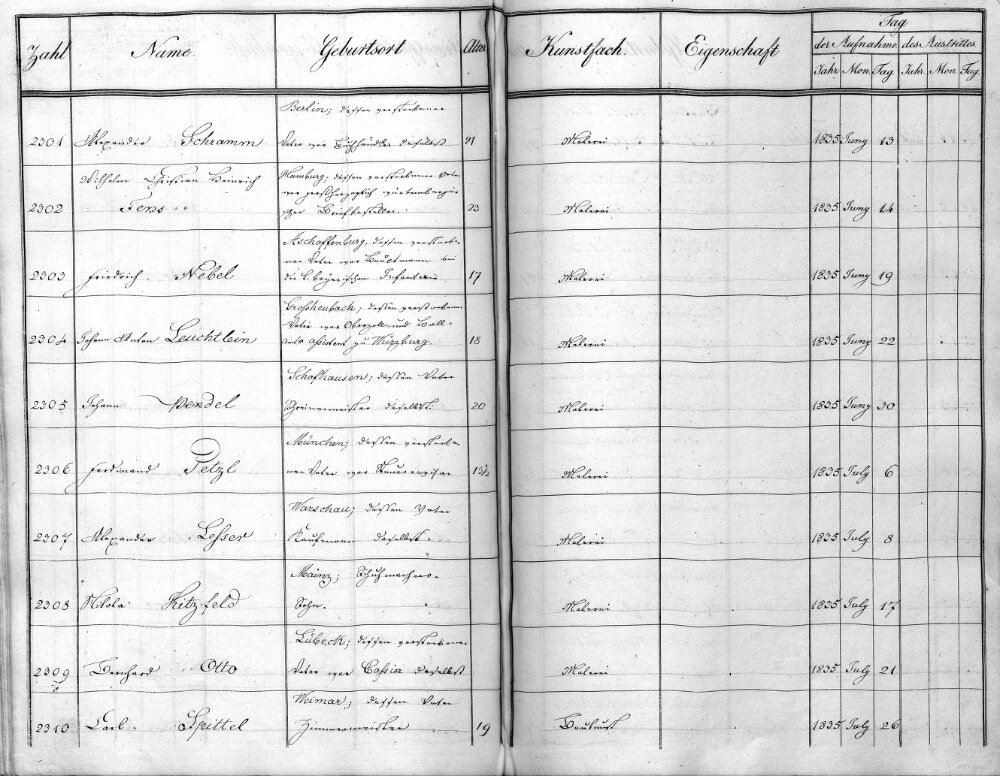 Zahl Name Geburtsort Alter Kunstfach. Eigenschaft Tag
der Aufnahme des Austrittes
Jahr Mon Tag Jahr Mon Tag
Berlin; dessen verstorbener
2301 Alexander Schramm Vater war Buchhändler daselbst 21 Malerei 1835 Juny 13
Wilhelm Christian Heinrich Hamburg; dessen verstorbener Vater
war großherzoglich
2302 Jens Briefbesteller 23 Malerei 1835 Juny 14
Aschaffenburg, dessen verstorbe-
ner Vater war Hauptmann bei
2303 Friedrich Nebel die k. bayerischen Infanterie 17 Malerei 1835 Juny 19
Großheubach; dessen verstorbener
Vater war Oberzoll- und Hall-
2304 Johann Anton Leuchtlein amts Assistent zu Würzburg 18 Malerei 1835 Juny 22
Schafhausen; dessen Vater
2305 Johann Pendel Schreinermeister daselbst 20 Malerei 1835 Juny 30
München; dessen verstorbe-
2306 Ferdinand Petzl ner Vater war 15½ Malerei 1835 July 6
Warschau; dessen Vater
2307 Alexander Lesser Kaufmann daselbst Malerei 1835 July 8
Mainz; Schuhmachers-
2308 Nikola Ritzfeld Sohn. Malerei 1835 July 17
Lübeck; dessen verstorbener
2309 Bernhard Otto Vater war Cassier daselbst Malerei 1835 July 21
Weimar; dessen Vater
2310 Carl Spittel Zimmermeister 19 Baukunst 1835 July 26